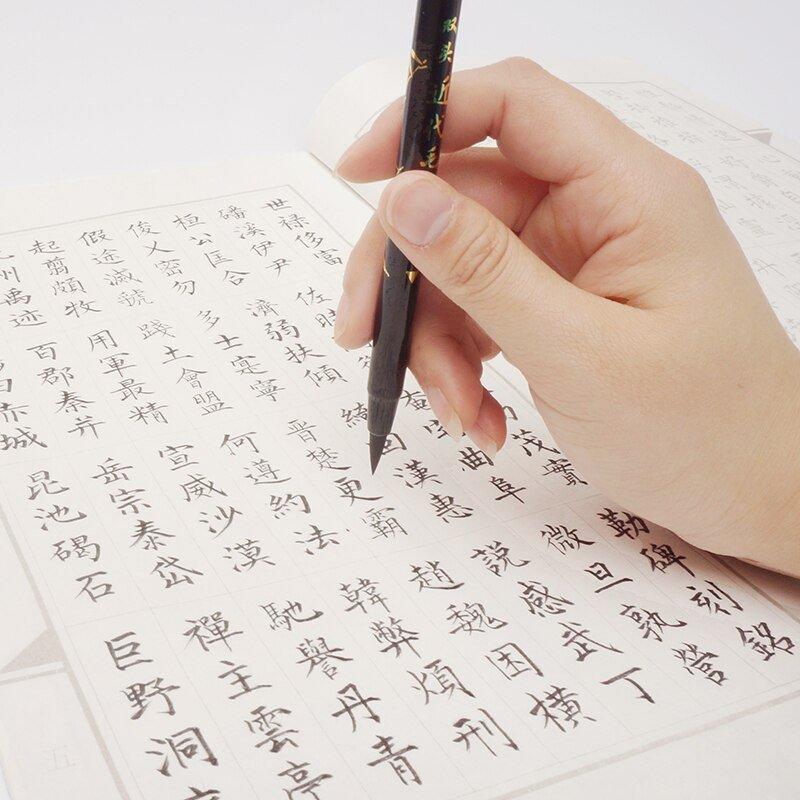 双头 近代毛
世禄侈富 茂實 勒碑刻銘
磻溪伊尹 佐時 奄宅曲阜 微旦孰營
桓公匡合 濟弱扶傾 綺回漢惠 說感武丁
俊乂密勿 多士寔寧 晉楚更霸 趙魏困橫
假途滅虢 踐土會盟 何遵約法 韓弊煩刑
起翦頗牧 用軍最精 宣威沙漠 馳譽丹青
州禹迹 百郡秦并 岳宗泰岱 禪主雲亭
赤城 昆池碣石 巨野洞
五